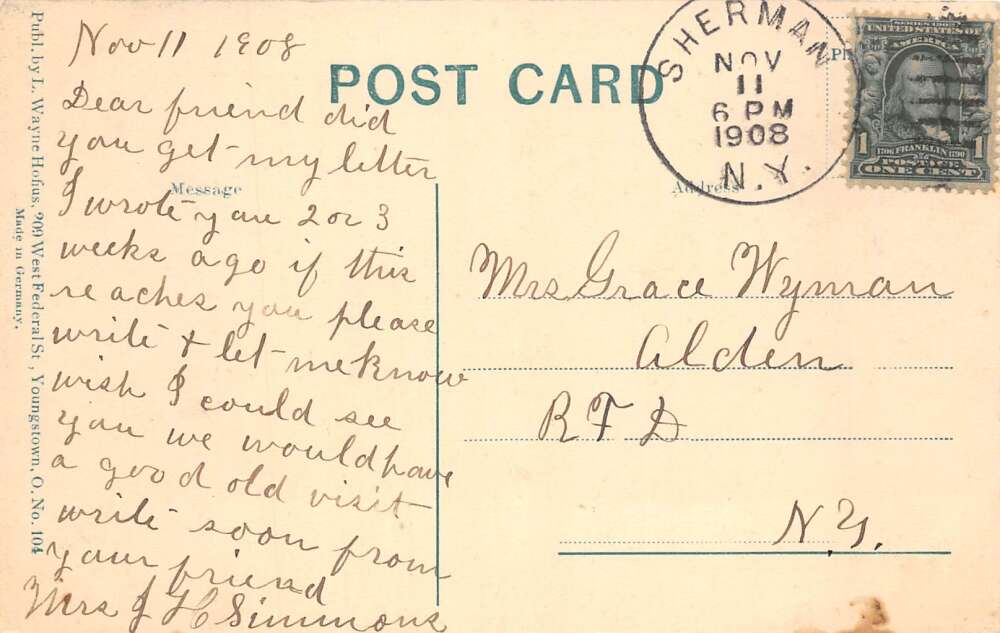 Publ. by L. Wayne Hofius, 209 West Federal St., Youngstown, O. No. 104
Made in Germany.
POST CARD
Message
Address
SHERMAN
NOV
11
6 PM
1908
N.Y.
SERIES 1902
UNITED STATES OF
AMERICA
1706 FRANKLIN 1790
1 1
POSTAGE
ONE CENT
Nov 11 1908
Dear friend did
you get my letter
I wrote you 2 or 3
weeks ago if this
reaches you please
write & let me know
wish I could see
you we would have
a good old visit
write soon from
your friend
Mrs J H Simmons
Mrs Grace Wyman
Alden
R F D
N.Y.